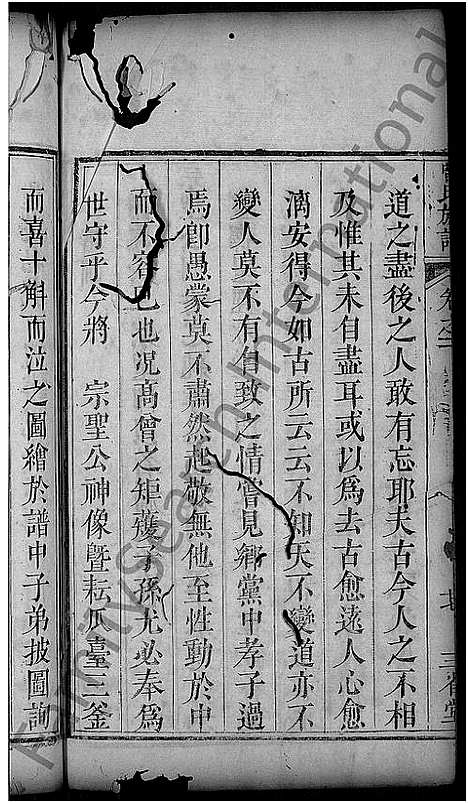 道之盡後之人敢有忘耶夫古今人之不相
及惟其未自盡耳或以為去古愈遠人心愈
漓安得今如古所云云不知天不變道亦不
變人莫不有自致之情嘗見鄉黨中孝子過
焉卽愚蒙莫不肅然起敬無他至性動於中
而不容已也况高曾之矩矱子孫尤必奉為
世守乎今將　宗聖公神像暨耘瓜臺三釜
而喜十斛而泣之圖繪於譜中子弟披圖詢
三省堂
FamilySearch International